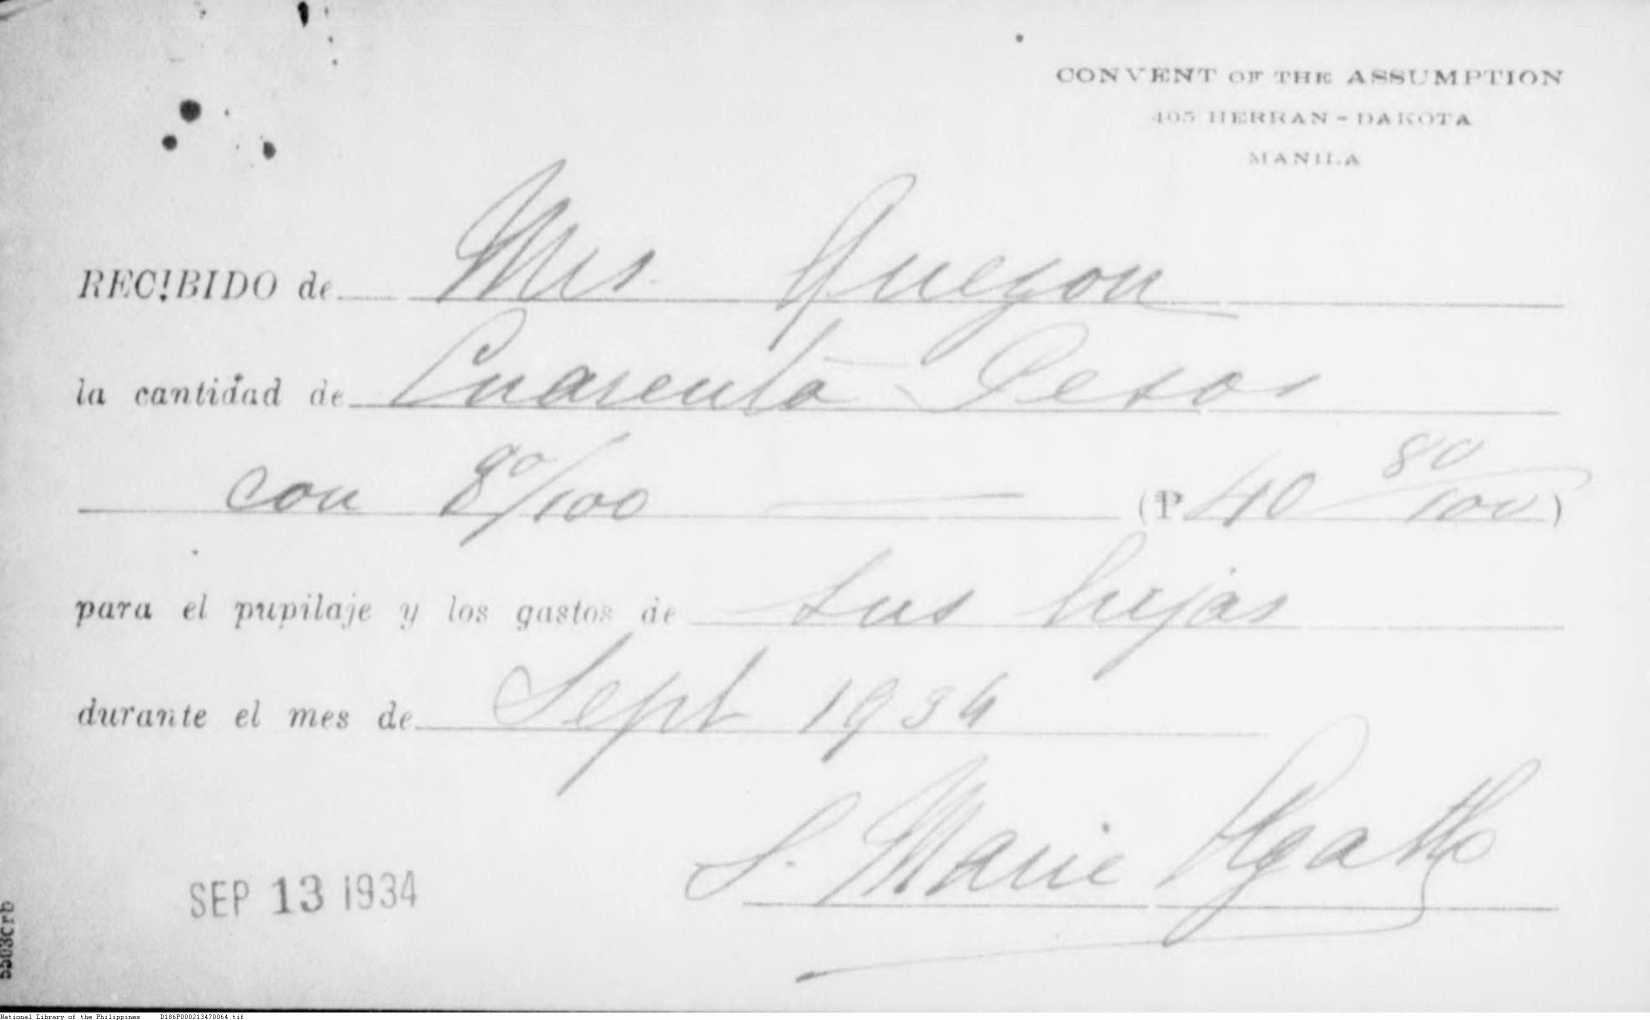 CONVENT OF THE ASSUMPTION
405 HERRAN - DAKOTA
MANILA
RECIBIDO de Mrs. Quezon
la cantidad de Cuarenta Pesos
con 80/100 (₱ 40 80/100)
para el pupilaje y los gastos de sus hijas
durante el mes de Sept 1934
S. Marie Agathe
SEP 13 1934
National Library of the Philippines D186P000213470064.tif